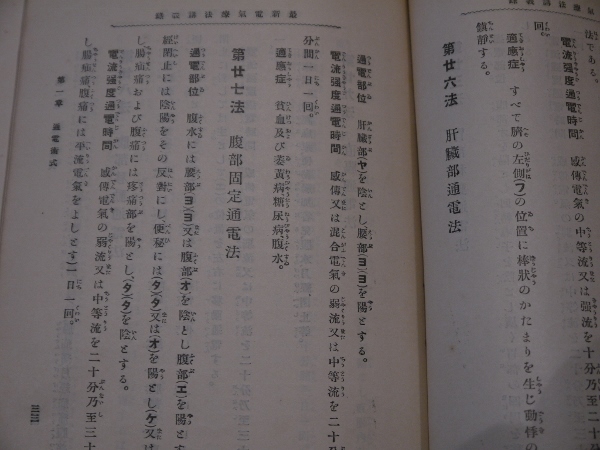 最新電氣療法講義錄
法である。
電流强度通電時間 感傳電氣の中等流又は强流を十
回。
適應症 すべて臍の左側(フ)の位置に棒狀のかたまりを生じ動悸の
鎭靜する。
第廿六法 肝臟部通電法
最新電氣療法講義錄
通電部位 肝臟部(ヤ)を陰とし腰部(ヨ)(ヨ)を陽とする。
電流强度通電時間 感傳又は混合電氣の弱流又は中等流を二十
分間一日一回。
適應症 貧血及び萎黃病、糖尿病、腹水。
第廿七法 腹部固定通電法
通電部位 腹水には腰部(ヨ)(ヨ)又は腹部(オ)を陰とし腹部(エ)を陽とす
經閉止には陰陽をその反對にし、便秘には(タ)(タ)又は(オ)を陽とし(ケ)又は
し腸疝痛および腹痛には疼痛部を陽とし(タ)(タ)を陰とする。
電流强度通電時間 感傳電氣の弱流又は中等流を二十分乃至三十
し腸疝痛腹痛には平流電氣をよしとす)一日一回。
第一章 通電術式
三三